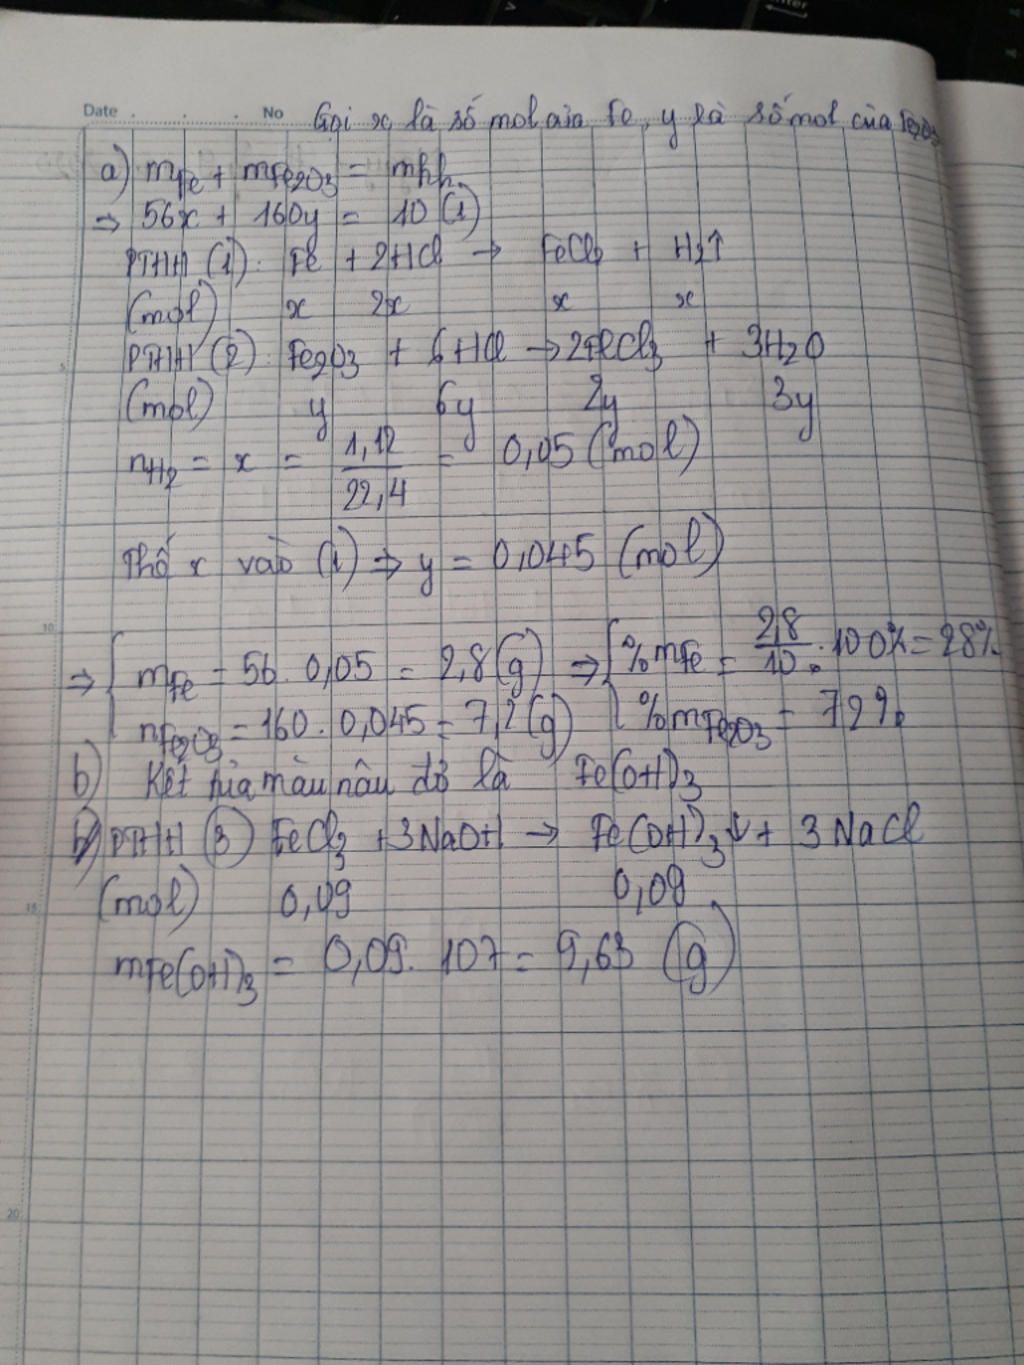 Date No Gọi x là số mol của Fe, y là số mol của Fe2O3
a) mFe + mFe2O3 = mhh
⇒ 56x + 160y = 10 (1)
PTHH (1): Fe + 2HCl → FeCl2 + H2↑
(mol) x 2x x x
5
PTHH (2): Fe2O3 + 6HCl → 2FeCl3 + 3H2O
(mol) y 6y 2y 3y
nH2 = x = 1,12/22,4 = 0,05 (mol)
Thế x vào (1) ⇒ y = 0,045 (mol)
10
⇒ { mFe = 56 . 0,05 = 2,8 (g) ⇒ { %mFe = 2,8/10 . 100% = 28%
nFe2O3 = 160 . 0,045 = 7,2 (g) %mFe2O3 = 72%
b) Kết tủa màu nâu đỏ là Fe(OH)3
PTHH (3) FeCl3 + 3NaOH → Fe(OH)3↓ + 3NaCl
(mol) 0,09 0,09
15
mFe(OH)3 = 0,09. 107 = 9,63 (g)
20